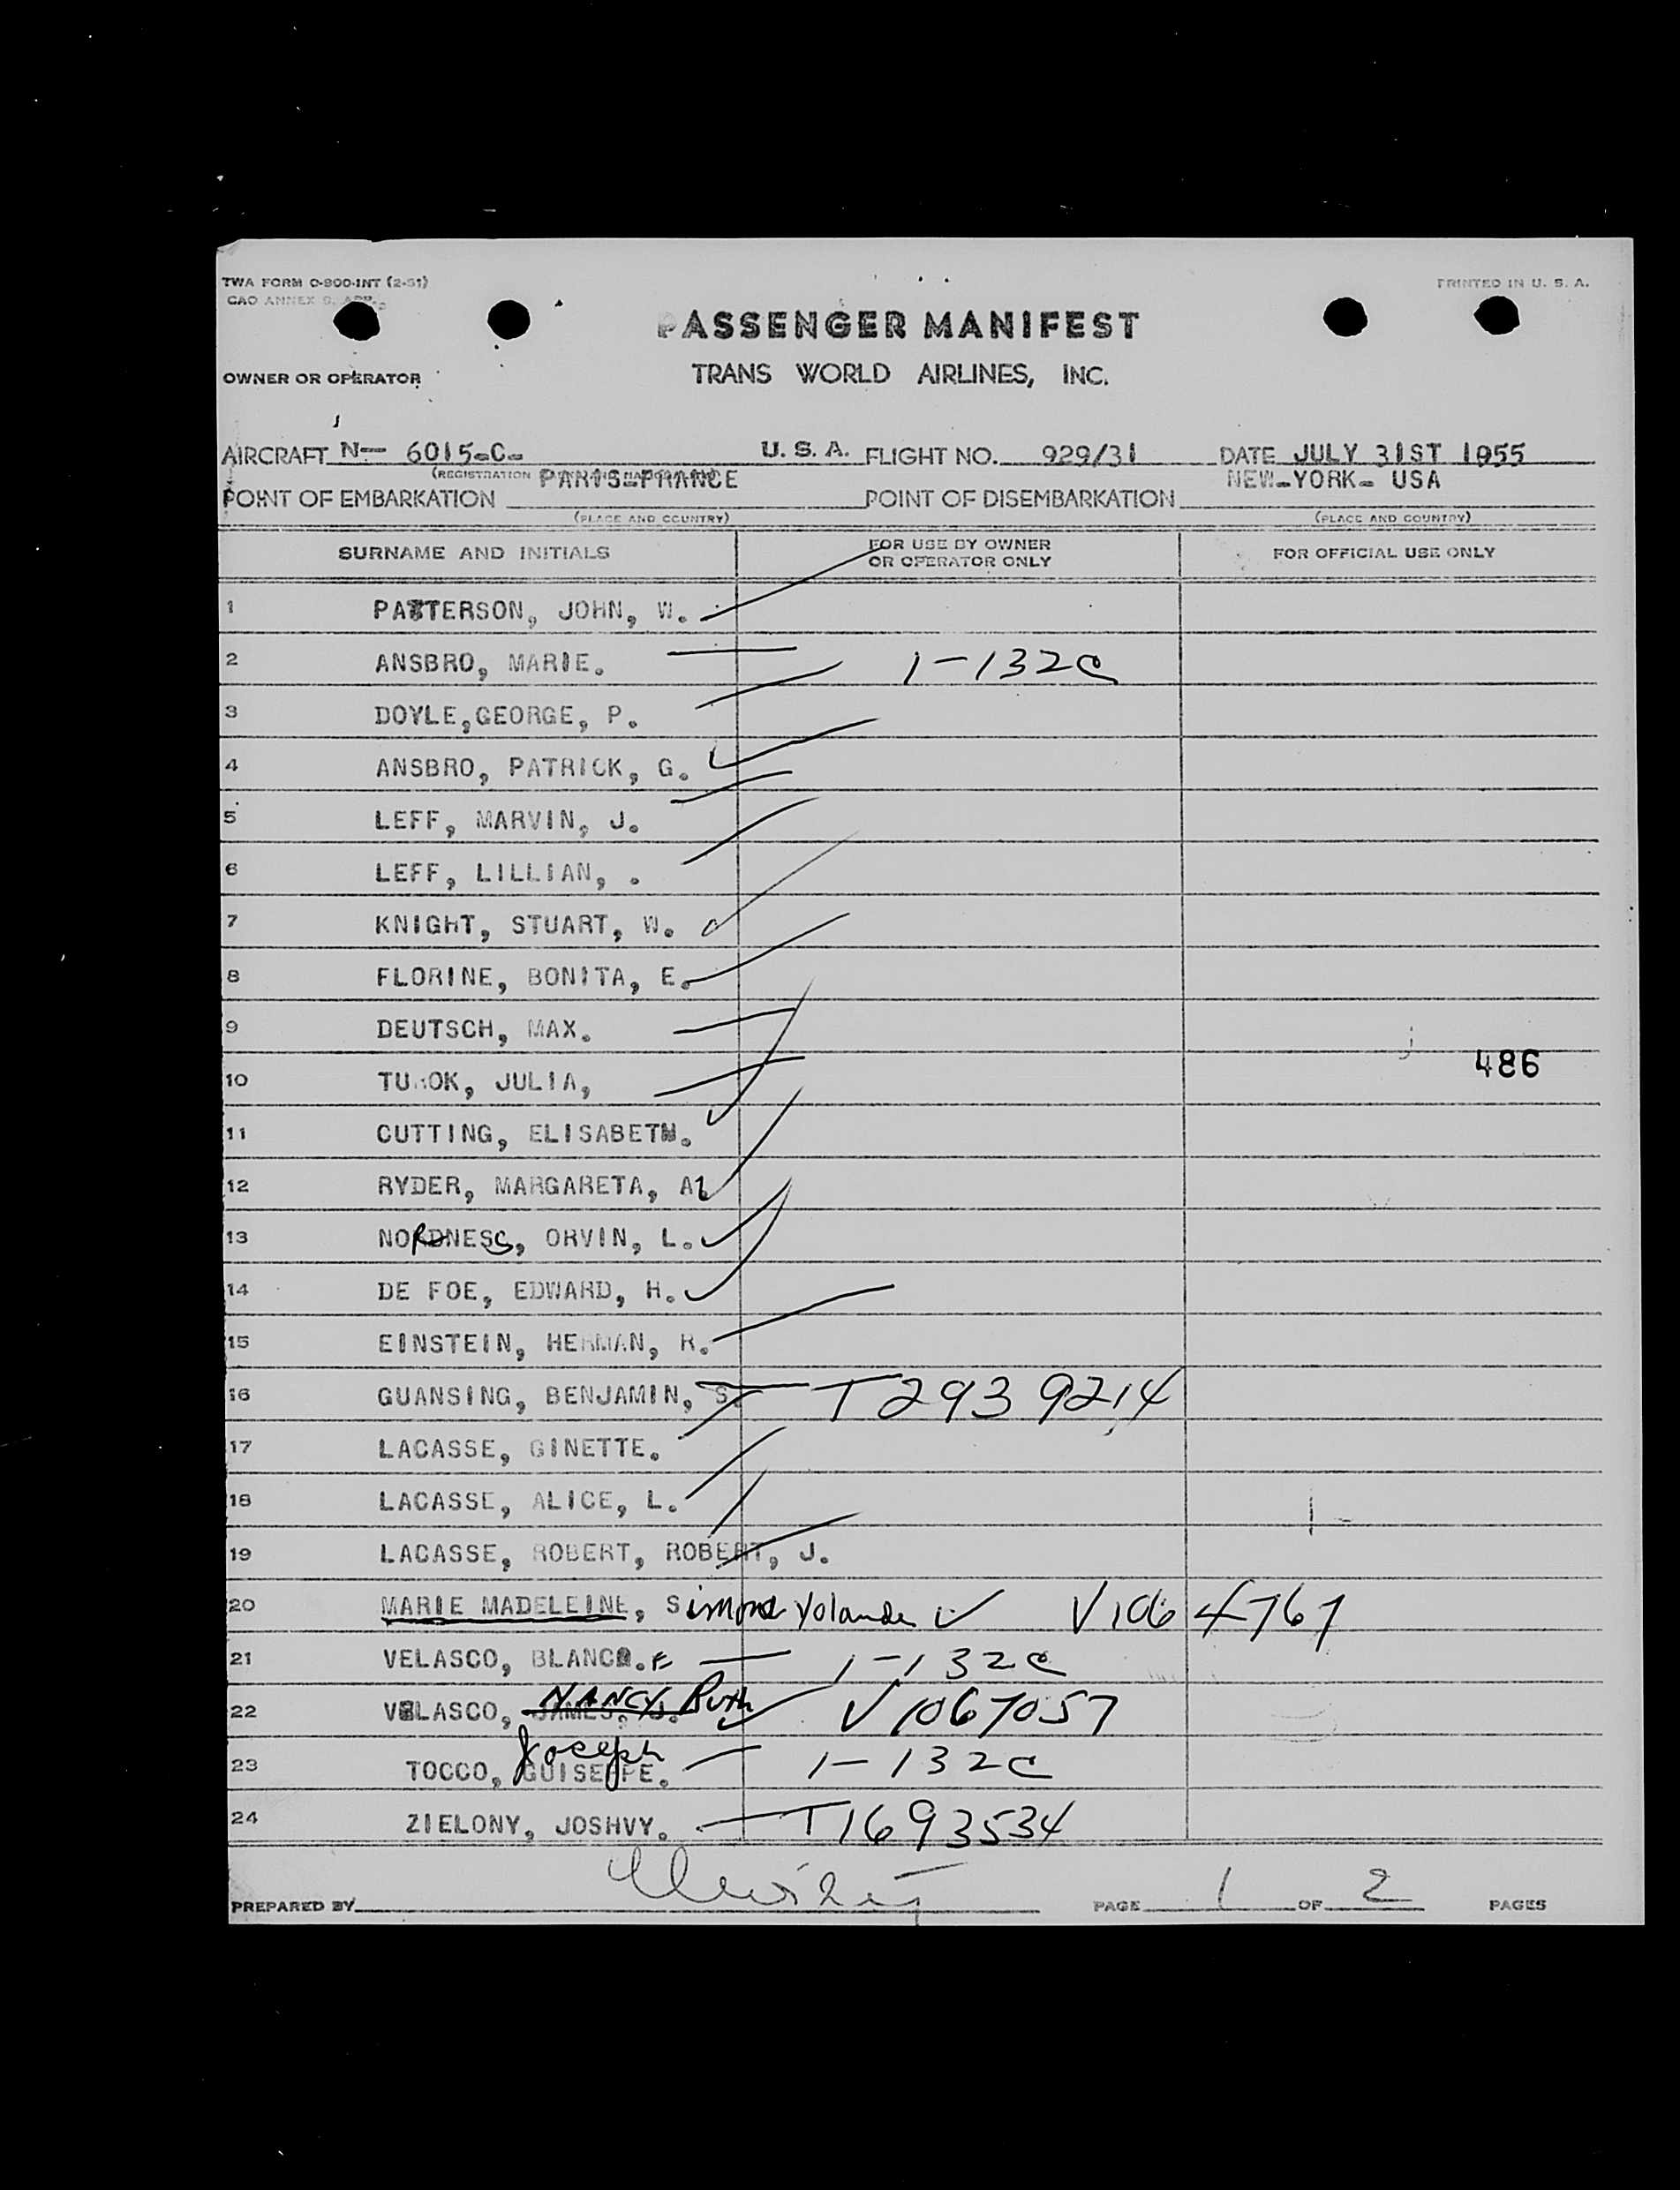 TWA FORM O-900-INT (2-51)
PRINTED IN U. S. A.
PASSENGER MANIFEST
OWNER OR OPERATOR TRANS WORLD AIRLINES, INC.
AIRCRAFT N- 6015-C- U. S. A. FLIGHT NO. 929/31 DATE JULY 31ST 1955
(REGISTRATION
PARIS-FRANCE NEW-YORK- USA
POINT OF EMBARKATION POINT OF DISEMBARKATION
(PLACE AND COUNTRY) (PLACE AND COUNTRY)
SURNAME AND INITIALS FOR USE BY OWNER OR OPERATOR ONLY FOR OFFICIAL USE ONLY
1 PATTERSON, JOHN, W.
2 ANSBRO, MARIE. 1-132c
3 DOYLE,GEORGE, P.
4 ANSBRO, PATRICK, G.
5 LEFF, MARVIN, J.
6 LEFF, LILLIAN, .
7 KNIGHT, STUART, W.
8 FLORINE, BONITA, E.
9 DEUTSCH, MAX.
486
10 JULIA,
11 CUTTING, ELISABETH.
12 RYDER, MARGARETA, A.
13 NORDNESS, ORVIN, L.
14 DE FOE, EDWARD, H.
15 EINSTEIN, HERMAN, R.
16 GUANSING, BENJAMIN, S. T2939214
17 LACASSE, GINETTE.
18 LACASSE, ALICE, L.
19 LACASSE, ROBERT, ROBERT, J.
20 MARIE MADELEINE, Simone Yolande V1064767
21 VELASCO, BLANCO.E 1-132c
22 VELASCO, JAMES, J. NANCY Ruth V1067057
23 TOCCO, GUISEPPE. Joseph 1-132c
24 ZIELONY, JOSHVY. T1693534
PREPARED BY PAGE 1 OF 2 PAGES